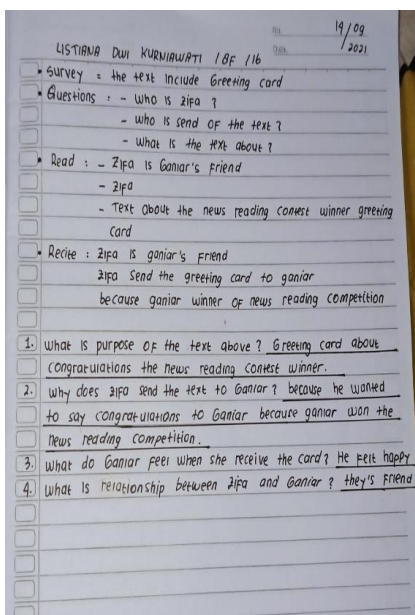 NO.
DATE
14/09
/2021
LISTIANA DWI KURNIAWATI / 8F / 16
• Survey = the text include Greeting card
• Questions : - Who is zifa ?
- Who is send of the text ?
- What is the text about ?
• Read : - Zifa is Ganiar's friend
- Zifa
- Text about the news reading contest winner greeting
card
• Recite : Zifa is ganiar's friend
Zifa Send the greeting card to ganiar
because ganiar winner of news reading competition
1. What is purpose of the text above ? Greeting card about
congratulations the news reading contest winner.
2. Why does zifa send the text to Ganiar ? because he wanted
to say congratulations to Ganiar because ganiar won the
news reading competition.
3. What do Ganiar feel when she receive the card? He felt happy
4. What is relationship between zifa and Ganiar ? they's friend